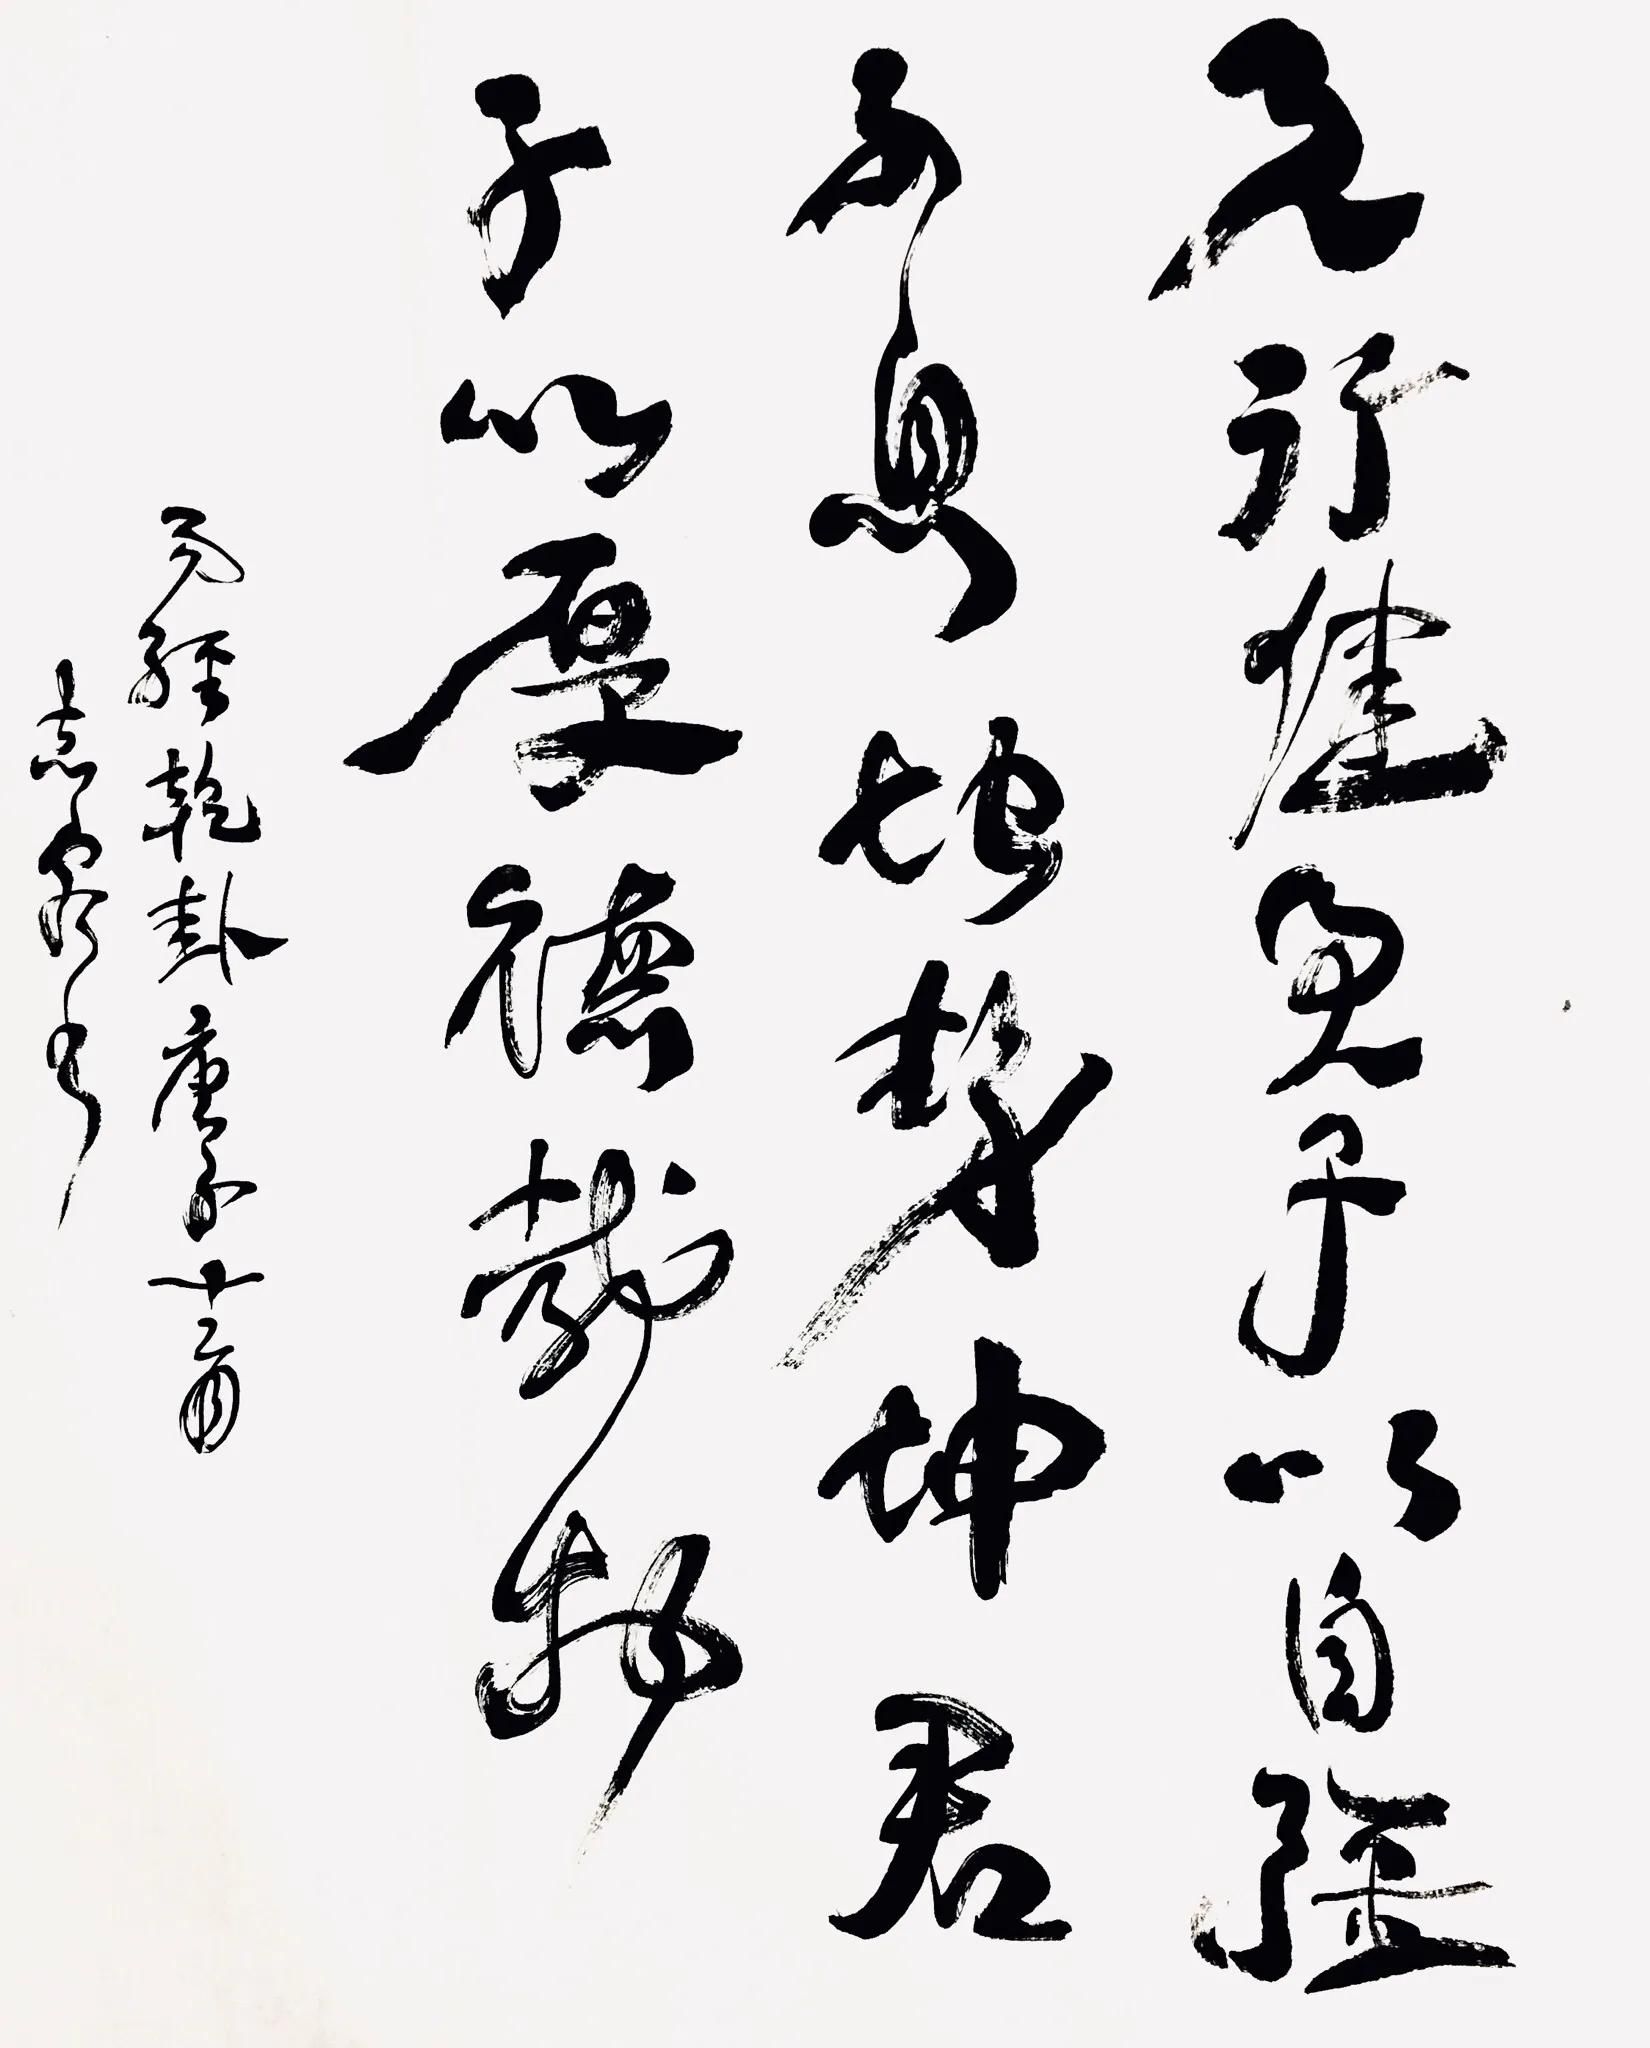 天行健君子以自强
不息地势坤君
子以厚德载物
易经乾卦庚子十二月
志